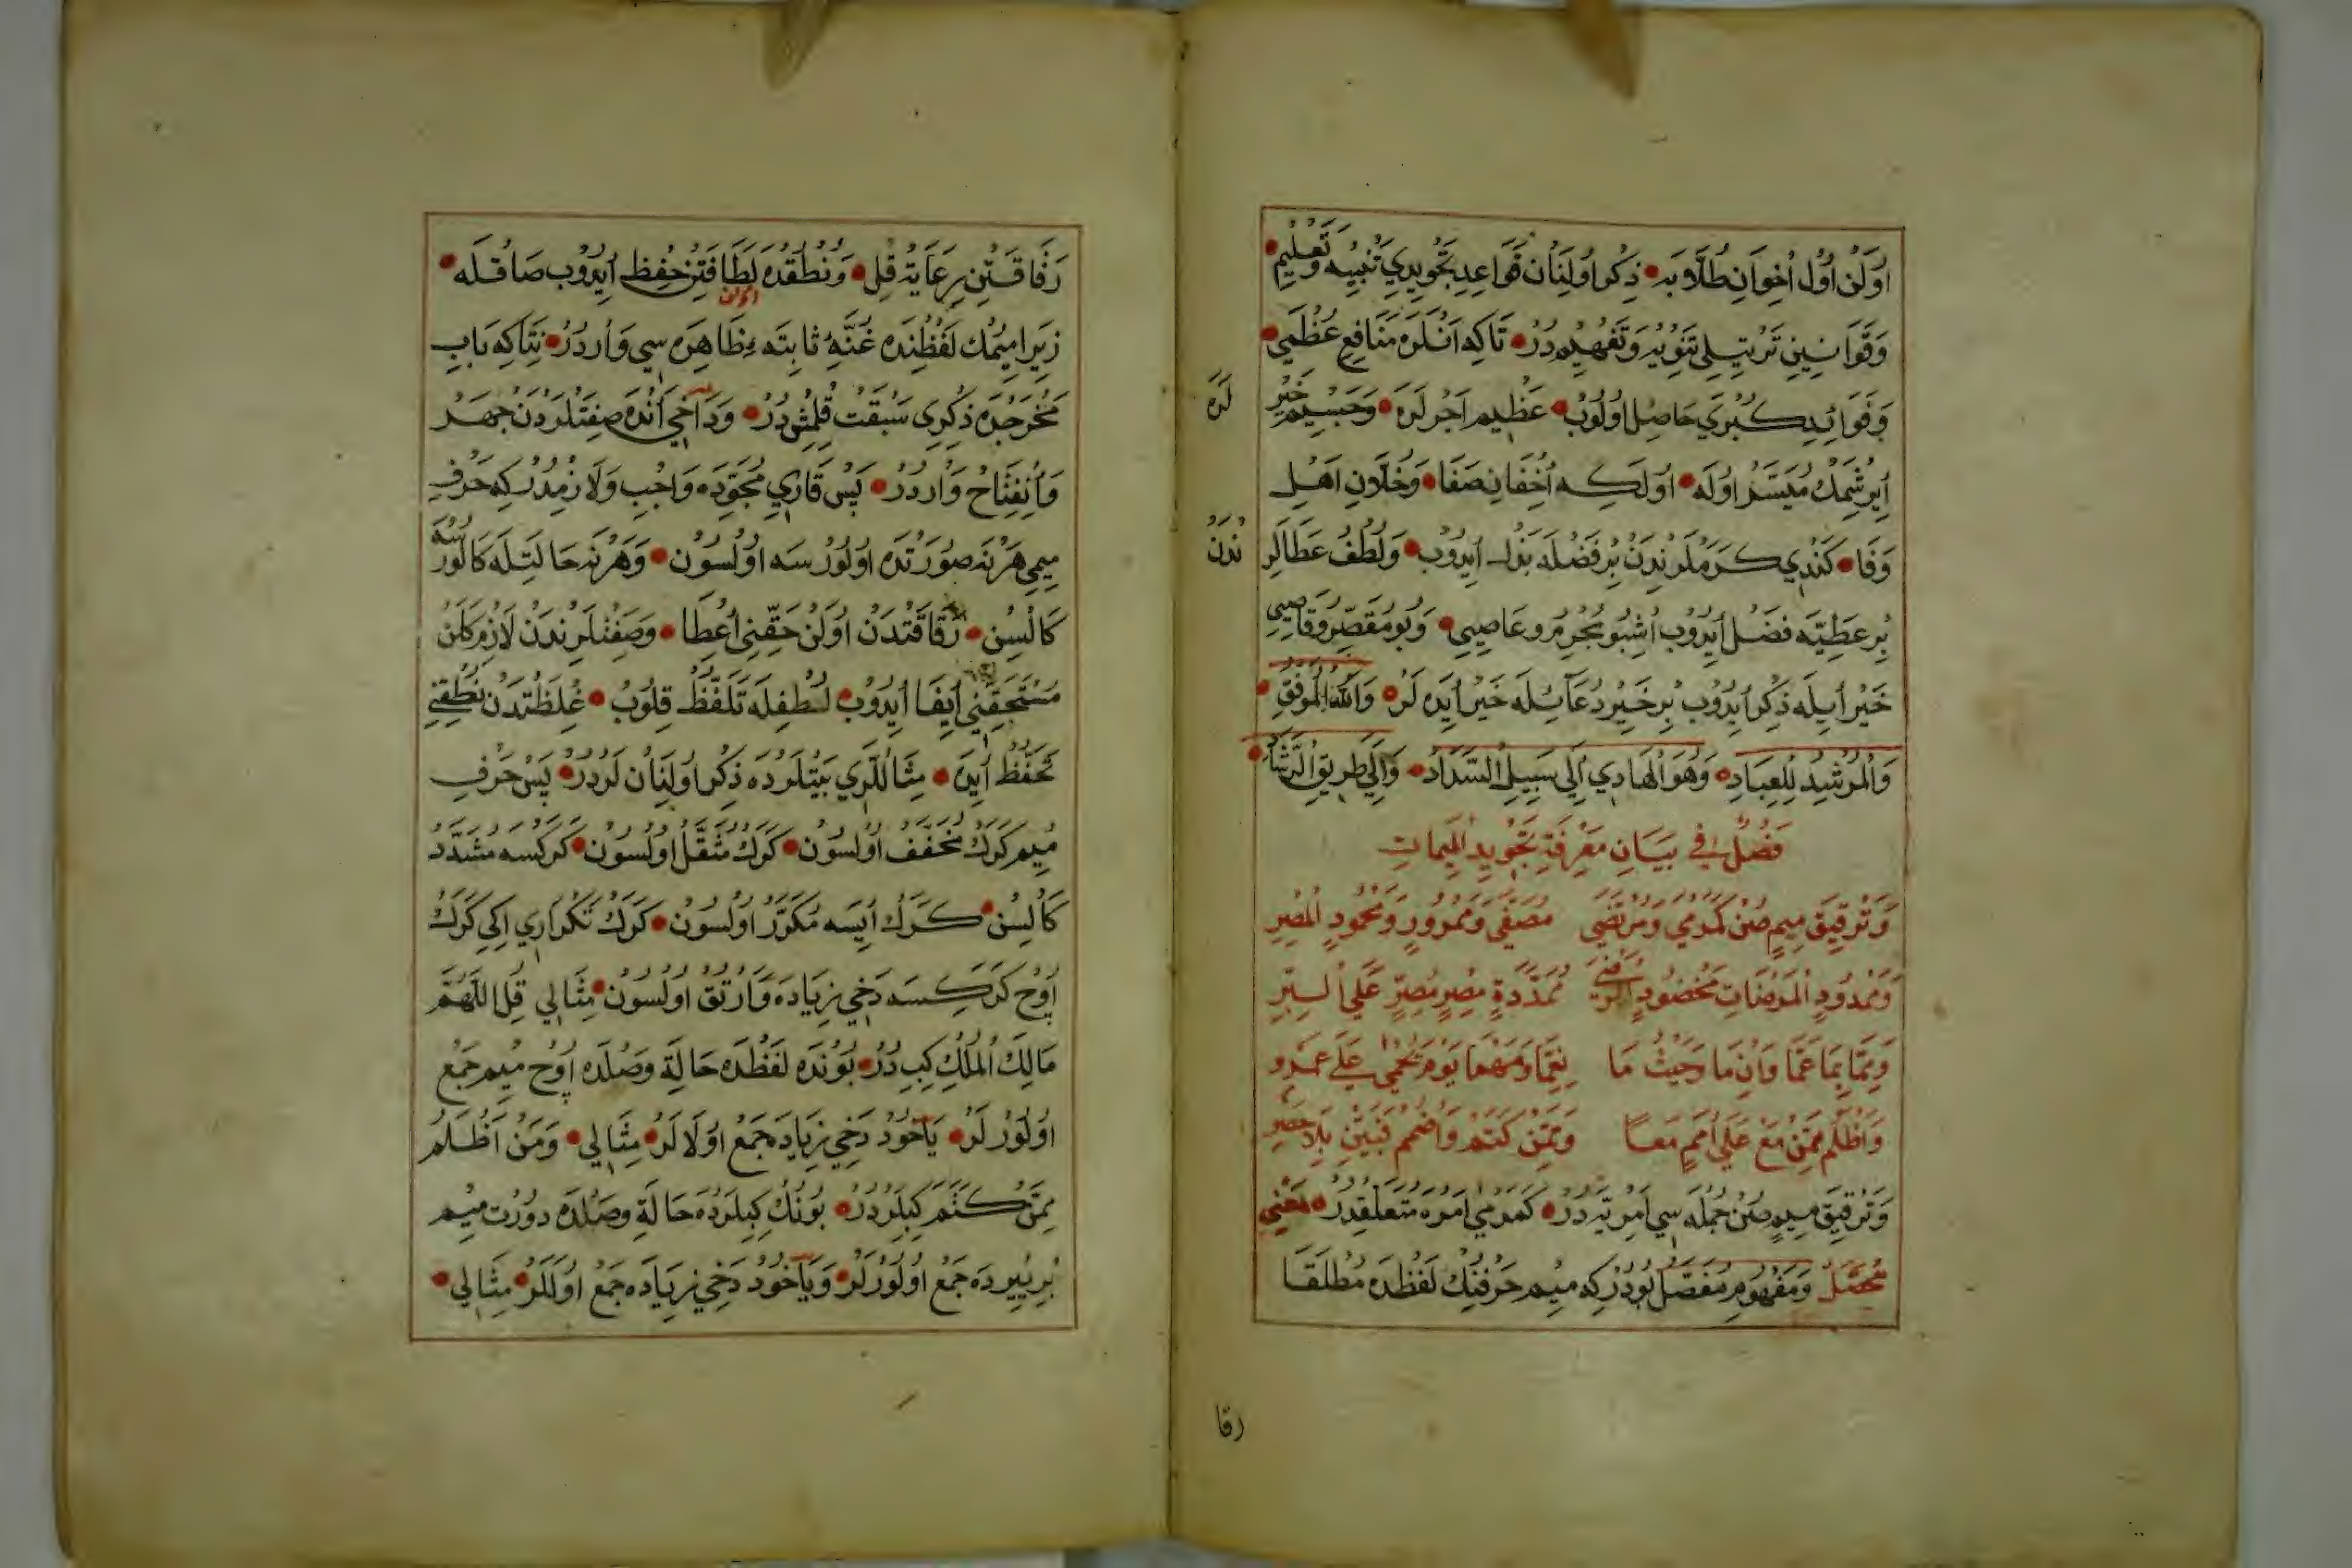 اوُلَنْ اوُلْ اُخِوَانِ طُلَّابَه ذِكْر اوُلِنَانْ قَوَاعِدِ تَجْوِيدِي تَنْبِيه وَتَعْلِيم
وَقَوَانِينِ تَرْتِيلِي تَنْوِيْد وَتَفْهِيمْدُرْ تَاكِه اَنْلَرَه مَنَافِعِ عُظْمَي
وَفَوَائِدِ كُبْرَي حَاصِل اوُلُوبْ عَظِيم اَجْرلَرَه وَجَسِيم خَيْر
لَرَه
اِيرِشْمَكْ مُيَسَّرْ اوُلَه اوُلَكِه اُخِفَانِ صَفَا وَخُلَّانِ اَهْلِ
وَفَا كَنْدِي كَرَمْلَرِنْدَنْ بُرِ فَضْلَه بَذْل اِيدُوبْ وَلُطْفُ عَطَالَرِ
نْدَنْ
بُرِ عَطِيَّه فَضْل اِيدُوبْ اُشْبُو مُجْرِم وعَاصِيي وَبُو مُقَصِّر وَقَاصِيي
خَيْر اِيلَه ذِكْر اِيدُوبْ بُرِ خَيِر دُعَا ئِيلَه خَيْر اِيدَه لَرْ وَاللّٰهُ الْمُوَفِّقُ
وَالْمُرْشِدُ لِلْعِبَادِ وَهُوَ الْهَادِي اِلَي سَبِيلِ السَّدَادْ وَاِلَي طَرِيقِ الرَّشَادْ
فَصْلٌ فِي بَيَانِ مَعْرِفَةِ تَجْوِيدِ الْمِيمَاتِ
وَتَرْقِيقَ مِيمٍ صُنْ كَمَرْمِي وَمَرْتَضَي مُصَفَّي وَمَمْرُورٍ وَمَحْمُودِ الْمَصِيرِ
وَمَمْدُودِ الْمَرْضَاتِ مَخْضُودٍ مُمَدَّدَةٍ مِصْرٍ مُصِرٍّ عَلَي السِّيَرِ
وَمِمَّا بِمَا عَمَّا وَاِنْ مَا وَحَيْثُ مَا نِعِمَّا وَمَهْمَا يَوْمَ يُحْمَي عَلَي عَمْرِو
وَاَظْلَمُ مِمَّنْ مَعْ عَلَي اُمَمٍ مَعًا وَمِمَّنْ كَتَمْ وَاضْمُمْ نَبِيِّنِ بِلَا حَصْرِ
وَتَرْقِيقَ مِيمٍ صُنْ جُمْلَه سِي اَمْرِيَّه دُرْ كَمَرْمِي اَمْرَه مُتَعَلِّقْدُرْ يَعْنِي
مُحَصَّلْ وَمَفْهُومِ مُفَصَّلْ بُودُرْكِه مِيم حَرْفِنِكْ لَفْظَدَه مُطْلَقَا
رقا
رَقَاقَتِنِ رِعَايَة قِل وَنُطْقَدَه لَطَافَتِنْ حِفِظ اِيدُوب صَاقْلَه
زِيرَا مِيمُكْ لَفْظِنْدَه غُنَّهُ ثَابِتَه ظَاهِرَه سِي وَاردُرْ نِتَاكِه بَابِ
اولان
مَخْرَجْدَه ذِكْرِي سَبْقَت قِلْمِشْدُرْ وَدَاخِي اَنْدَه صِفَتْلَرْدَنْ جَهَرْ
وَاُنْفِتَاحْ وَاردُرْ پَسْ قَارِي مُجَوِّدَه وَاجْبِ وَلَازِمْدُرْكِه حَرْفِ
مِيمِي هَرْنَه صُورَتْدَه اوُلُورْسَه اوُلْسُونْ وَهَرْنَه حَالَتِلَه كَالُورْسَه
كَالْسِنْ رَقَاقَتْدَنْ اوُلَنْ حَقِّنِي اِعْطَا وَصِفَتْلَرِنْدَنْ لَازِم كَلَنْ
مُسْتَحَقِّنِي اِيفَا اِيدُوبْ لُطْفِلَه تَلَفُّظْ قِلُوبْ غِلْظَتْدَنْ نُطْقِنِي
تَحَفُّظْ اِيدَه مِثَالْلَرِي بَيْتْلَرْدَه ذِكْر اوُلِنَانْ لَرْدُرْ پَسْ حَرْفِ
مِيم كَرَكْ مُخَفَّفْ اوُلْسُونْ كَرَكْ مُثَقَّلْ اوُلْسُونْ كَرَكْسَه مُشَدَّدْ
كَالْسِنْ كَرَكْ اِيسَه مُكَرَّرْ اوُلْسُونْ كَرَكْ تَكْرَارِي اِكِي كَرَكْ
اُوچْ كَرَكْسَه دَخِي زِيَادَه وَارْتُقْ اوُلْسُونْ مِثَالِي قُلِ اللَّهُمَّ
مَالِكَ الْمُلْكِ كِبِدُرْ بُونْدَه لَفْظْدَه حَالَةِ وَصْلْدَه اُوچْ مِيم جَمْعْ
اوُلُورْلَرْ يَاخُودْ دَخِي زِيَادَه جَمْعْ اوُلَالَرْ مِثَالِي وَمَنْ اَظْلَمُ
مِمَّنْ كَتَمَ كِبِلَرْدُرْ بُونُكْ كِبِلَرْدَه حَالَةِ وَصْلْدَه دوُرْتْ مِيم
بُرِ يِيردَه جَمْعْ اوُلُورْلَرْ وَيَاخُودْ دَخِي زِيَادَه جَمْعْ اوُلَلَرْ مِثَالِي